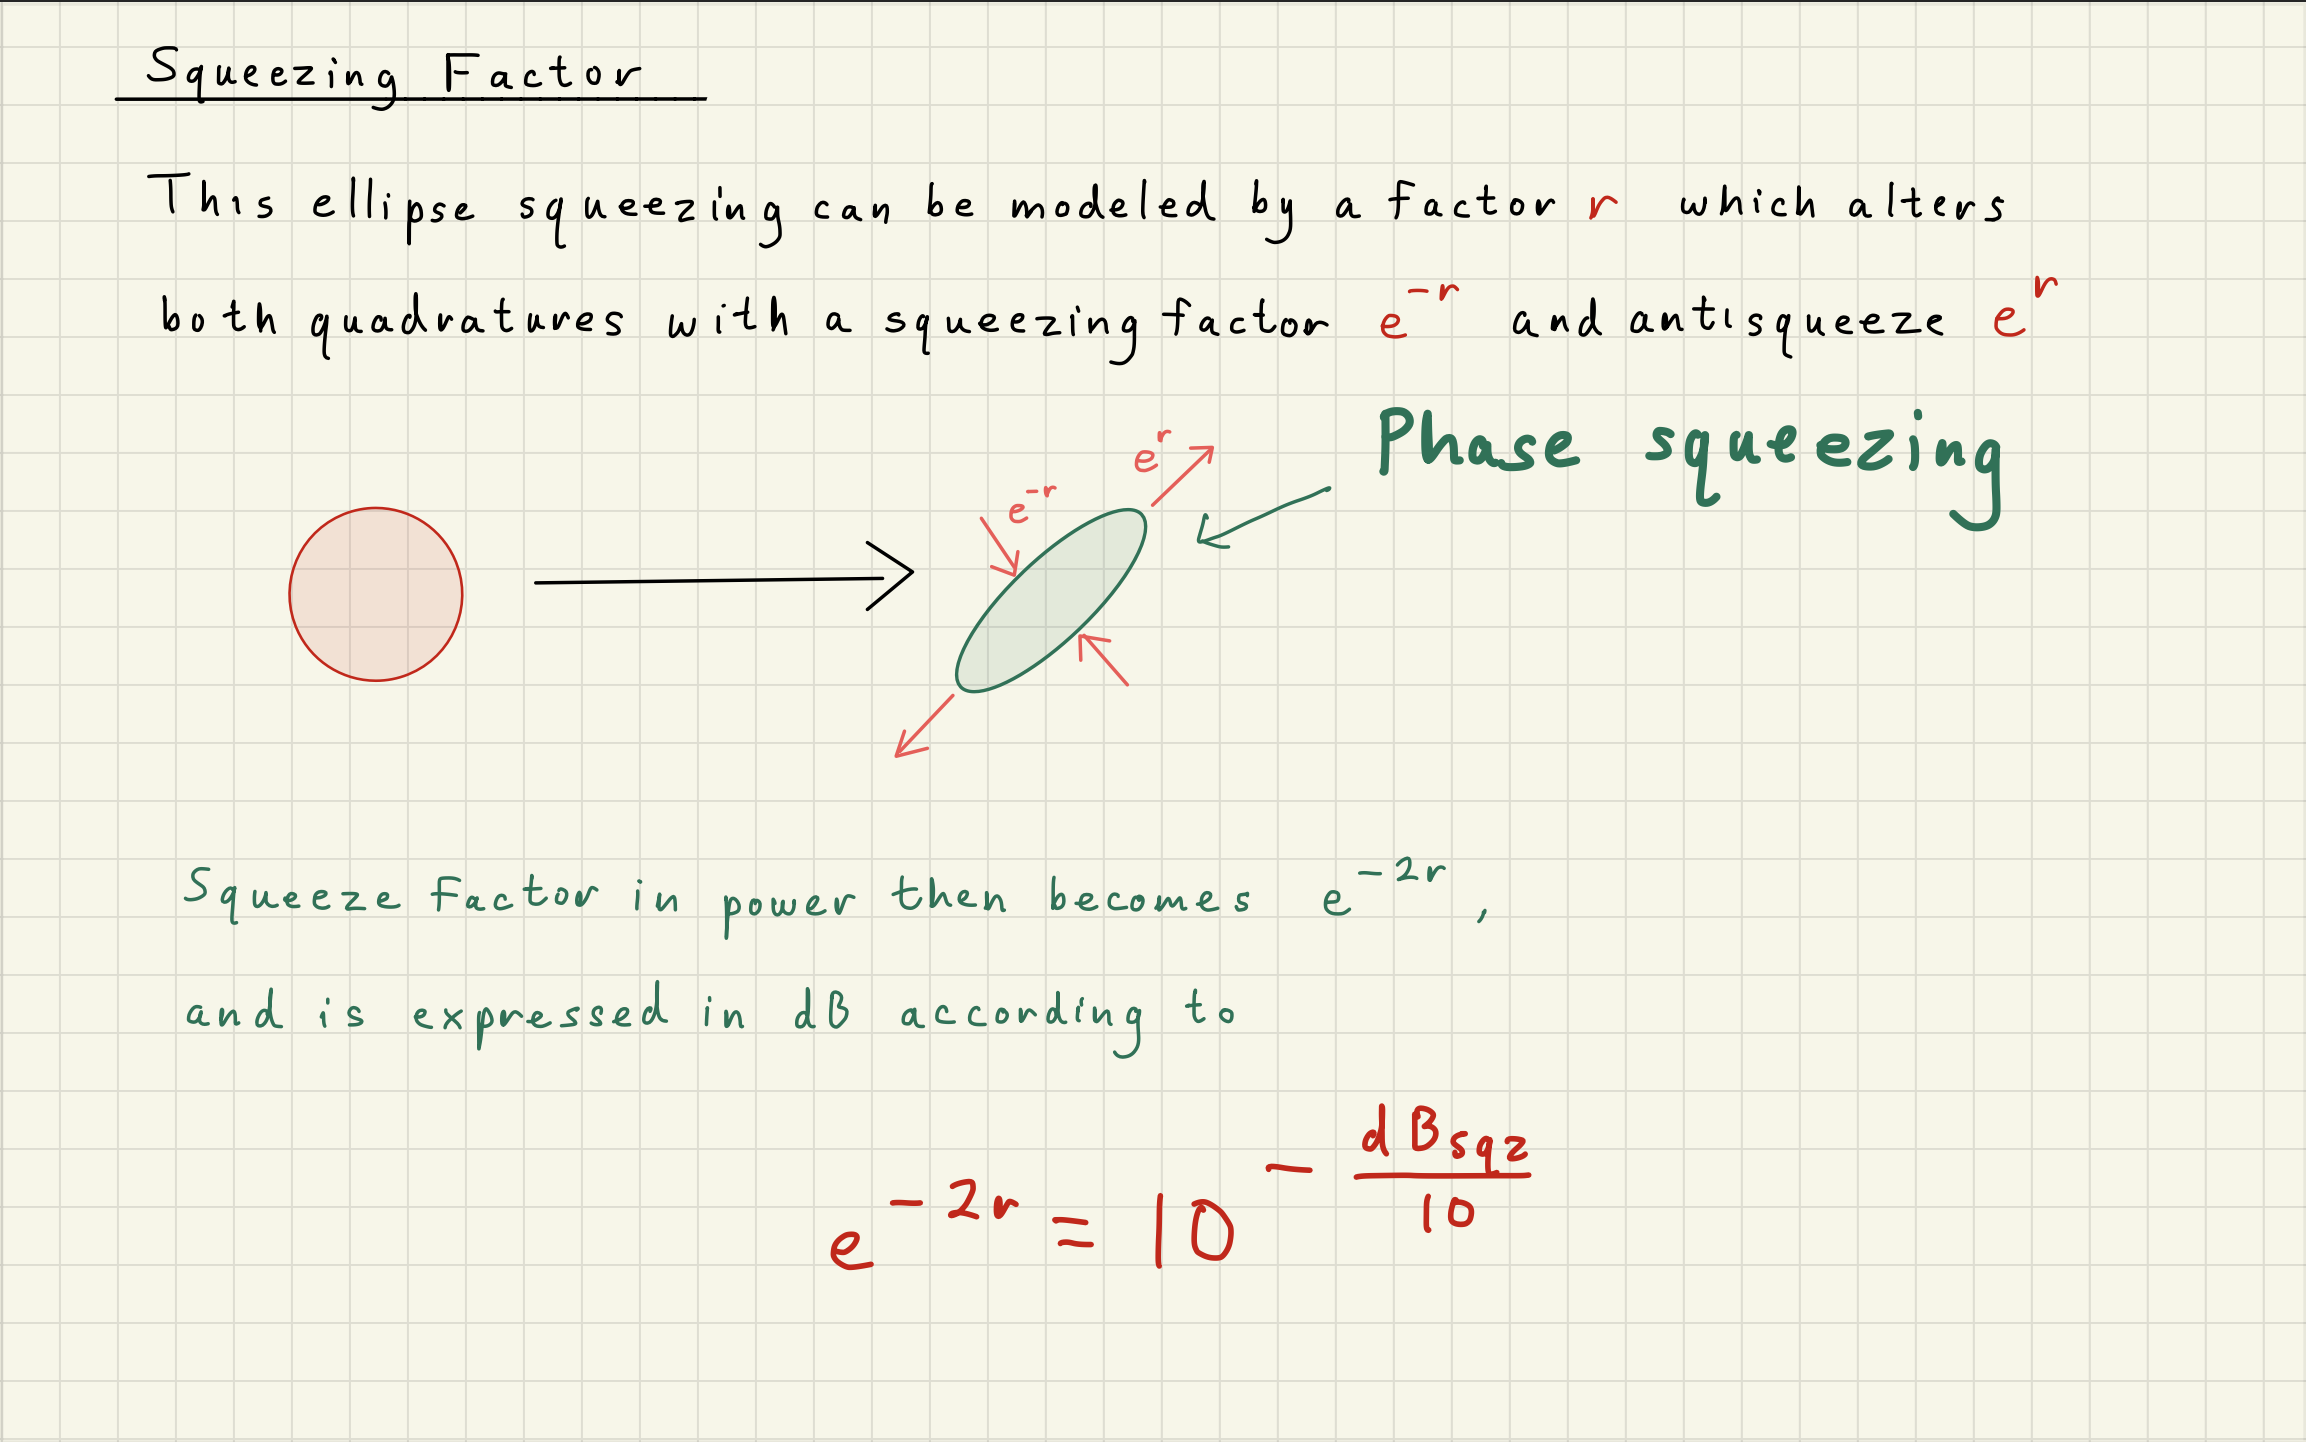 Squeezing Factor
This ellipse squeezing can be modeled by a factor r which alters
both quadratures with a squeezing factor e^-r and antisqueeze e^r
Phase squeezing
e^r
e^-r
Squeeze Factor in power then becomes e^-2r,
and is expressed in dB according to
e^-2r = 10^-dBsqz/10